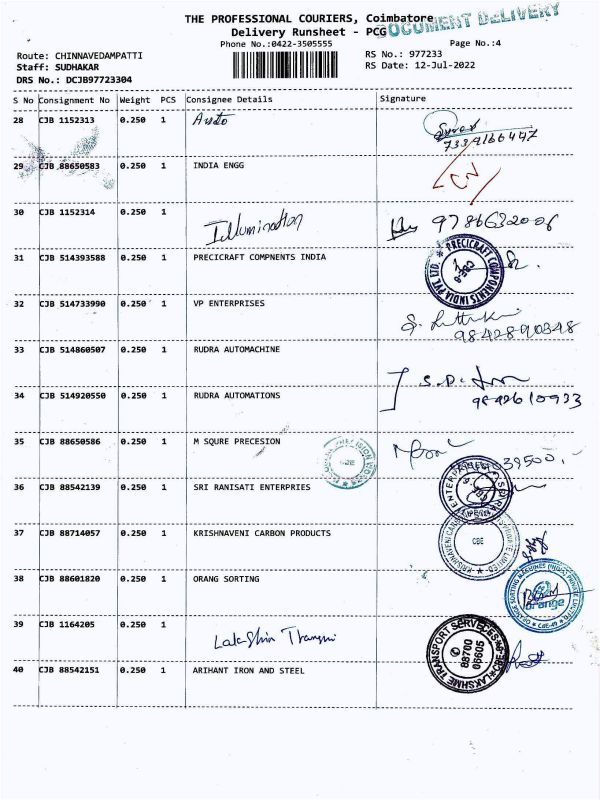 THE PROFESSIONAL COURIERS, Coimbatore
DOCUMENT DELIVERY
Delivery Runsheet - PCG
Phone No.:0422-3505555
Page No.:4
Route: CHINNAVEDAMPATTI
RS No.: 977233
Staff: SUDHAKAR
RS Date: 12-Jul-2022
DRS No.: DCJB97723304
S No Consignment No Weight PCS Consignee Details Signature
28 CJB 1152313 0.250 1 Auto
7339166447
29 CJB 88650583 0.250 1 INDIA ENGG
CN
30 CJB 1152314 0.250 1 Illumination
9786632006
31 CJB 514393588 0.250 1 PRECICRAFT COMPNENTS INDIA
PRECICRAFT COMPONENTS INDIA PVT. LTD.
32 CJB 514733990 0.250 1 VP ENTERPRISES
9842890348
33 CJB 514860507 0.250 1 RUDRA AUTOMACHINE
34 CJB 514920550 0.250 1 RUDRA AUTOMATIONS
9842610933
35 CJB 88650586 0.250 1 M SQURE PRECESION
CBE
39500
36 CJB 88542139 0.250 1 SRI RANISATI ENTERPRIES
37 CJB 88714057 0.250 1 KRISHNAVENI CARBON PRODUCTS
KRISHNAVENI CARBON PRODUCTS PRIVATE LIMITED
CBE
38 CJB 88601820 0.250 1 ORANG SORTING
ORANGE SORTING MACHINES (INDIA) PRIVATE LIMITED
orange
39 CJB 1164205 0.250 1
LAKSHME TRANSPORT SERVECES
88700
06605
40 CJB 88542151 0.250 1 ARIHANT IRON AND STEEL